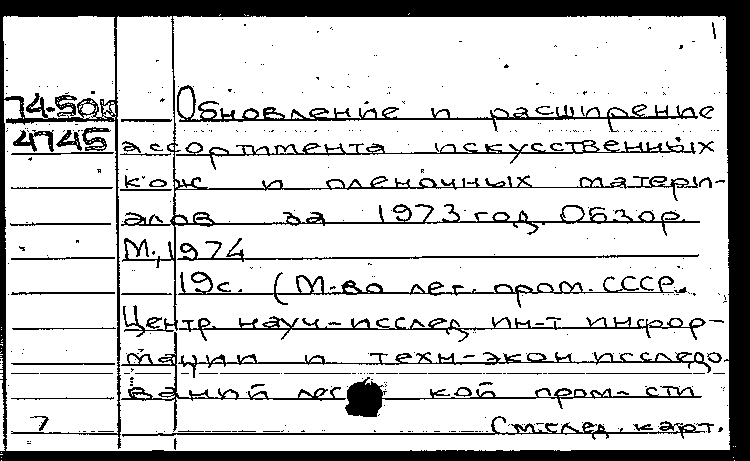 1
74-5ок Обновление и расширение
4745 ассортимента искусственных
кож и пленочных матери-
алов за 1973 год. Обзор.
М., 1974
19с. (М-во лег. пром. СССР.
Центр. науч-исслед. ин-т инфор-
мации и техн-экон исследо
ваний легкой пром-сти
7 См.след. карт.